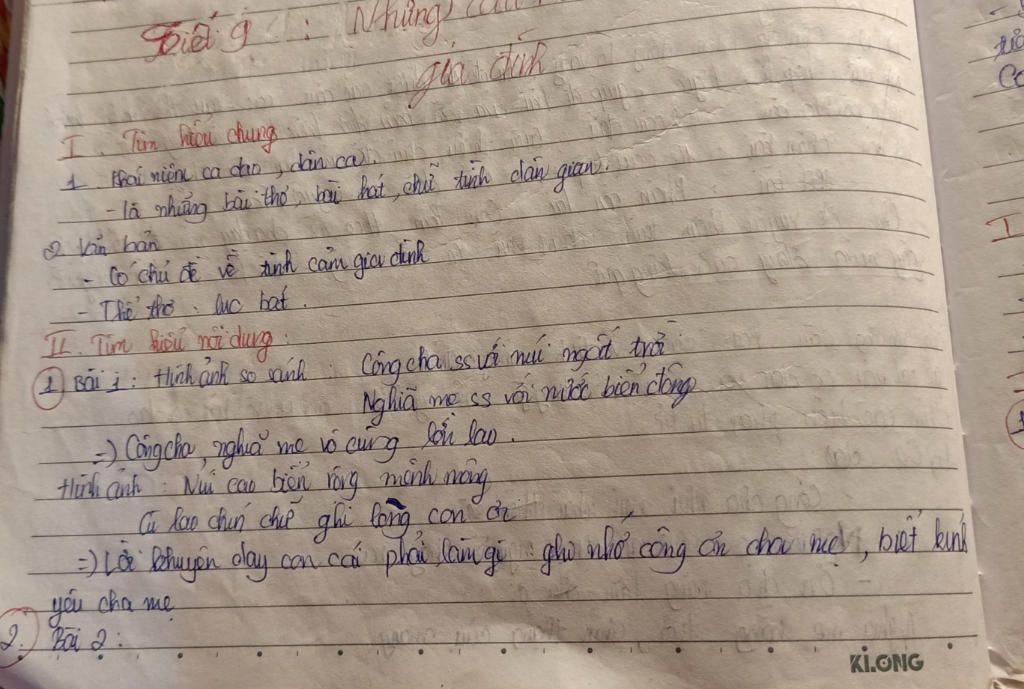 Tiết 9 : Những
gia đình
I. Tìm hiểu chung
1. Khái niệm ca dao, dân ca.
- là những bài thơ, bài hát, chữ tình dân gian.
2 Văn bản
- Có chủ đề về tình cảm gia đình
- Thể thơ: lục bát.
II. Tìm hiểu nội dung:
1 Bài 1: Hình ảnh so sánh: Công cha ss với núi ngất trời
Nghiã mẹ ss với nước biển đông
=> Công cha, nghiã mẹ vô cùng lớn lao.
Hình ảnh: Núi cao biển rộng mênh mông
Cù lao chín chữ ghi lòng con ơi
=> Lời khuyên dạy con cái phải làm gì: ghi nhớ công ơn cha mẹ, biết kính
yêu cha mẹ
2. Bài 2:
KLONG
I